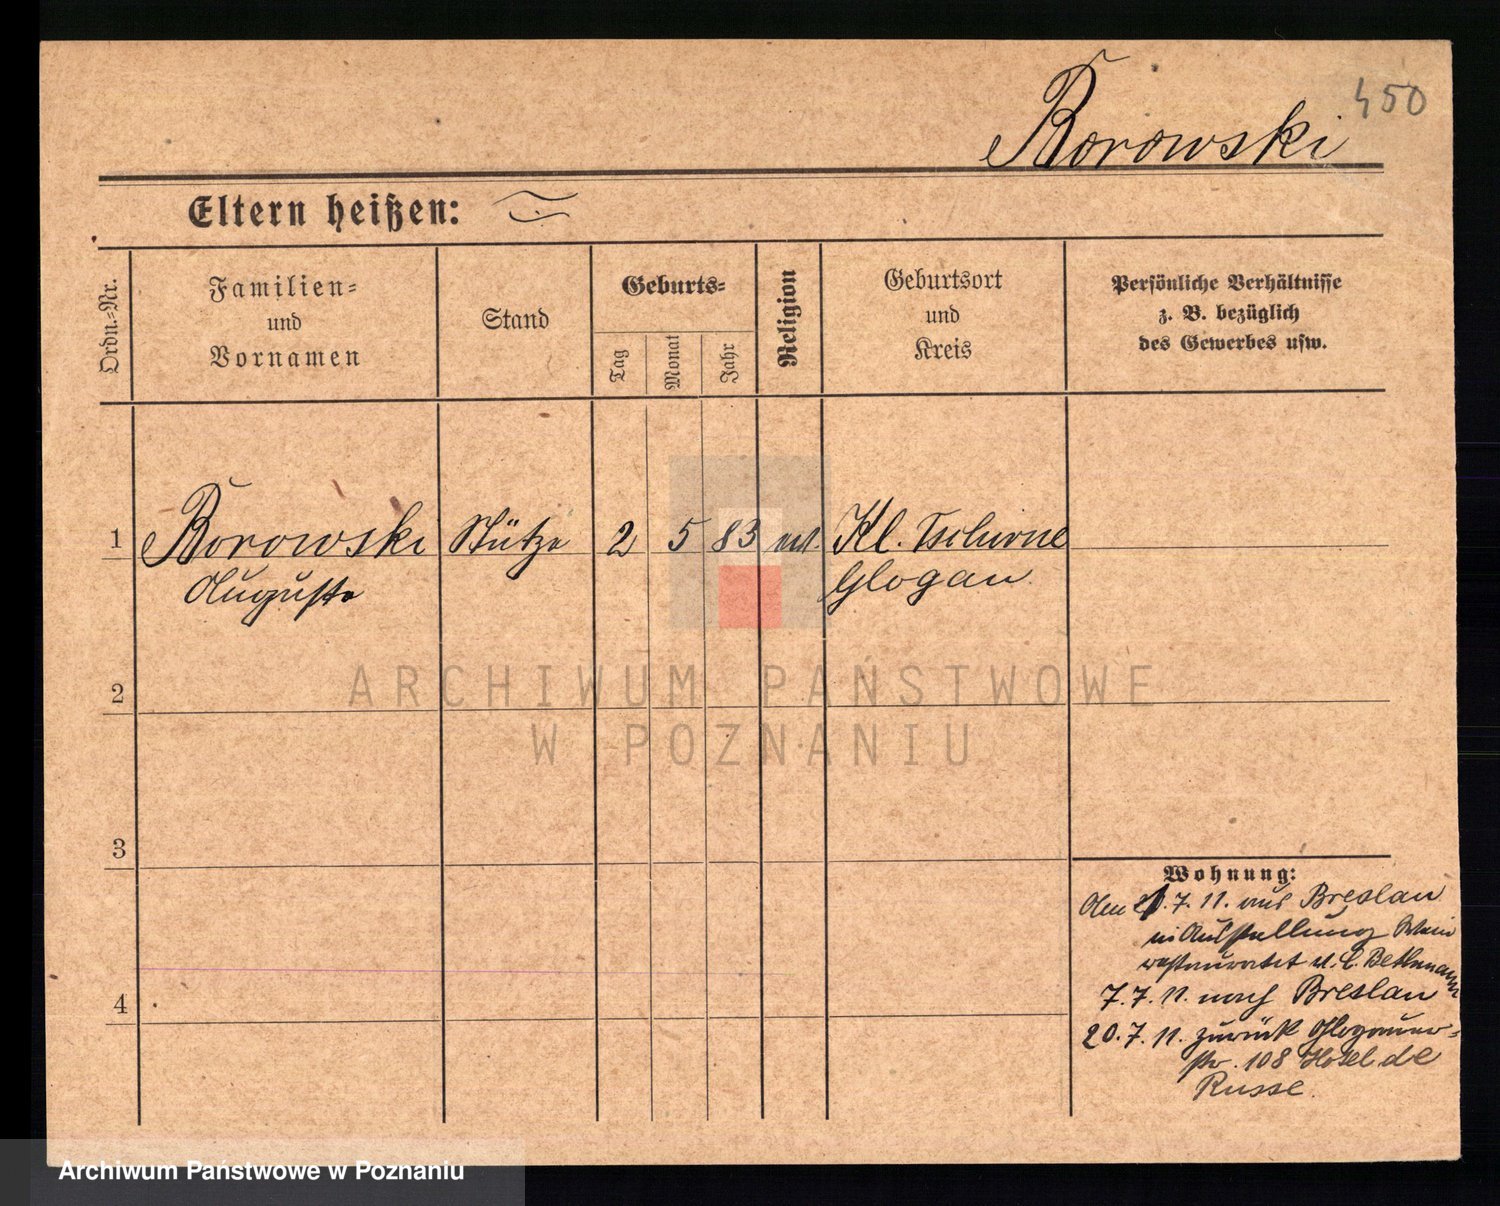 450
Borowski
Eltern heißen:
Ordn.=Nr.
Familien=
und
Vornamen
Stand
Geburts=
Tag
Monat
Jahr
Religion
Geburtsort
und
Kreis
Persönliche Verhältnisse
z. B. bezüglich
des Gewerbes usw.
1 Borowski Stütze 2 5 83 Kl. Tschirne
Auguste Glogau
2
3
4
Wohnung:
7. 11. aus Breslau
Ausstellung Wein
restaurant Bethmann
7. 7. 11. nach Breslau
20. 7. 11. zurück Glogauer=
str. 108 Hotel de
Russe.
ARCHIWUM PAŃSTWOWE
W POZNANIU
Archiwum Państwowe w Poznaniu